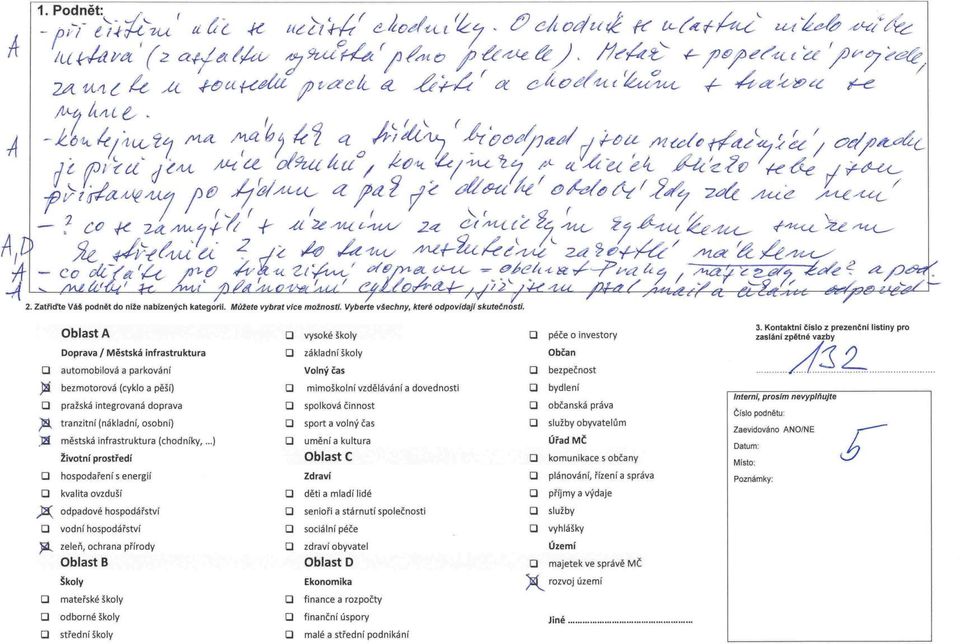 1. Podnět:
- při čištění ulic se nečistí chodníky. O chodník se vlastně nikdo vůbec
A
nestará (z asfaltu vyrůstá plno plevele). Metař s popelnicí projede,
zamete u sousedů prach a listí a chodníkům s trávou se
vyhne.
A
- kontejnery na nábytek a tříděný bioodpad jsou nedostačující, odpadu
je přeci jen více druhů, kontejnery v ulicích blízko sebe jsou
přistaveny po týdnu a pak je dlouhé období kdy zde nic není
A,D
- ? co se zamýšlí s územím za čimickým rybníkem směrem
ke střelnici ? je to tam neskutečně zarostlé náletem
A
- co děláte pro tranzitní dopravu = obchvat Prahy, nájezdy kde? apod.
A
- nelíbí se mi plánování cyklotras, již jsem psal mail a čekám odpověď -
2. Zatřiďte Váš podnět do níže nabízených kategorií. Můžete vybrat více možností. Vyberte všechny, které odpovídají skutečnosti.
Oblast A
Doprava / Městská infrastruktura
automobilová a parkování
bezmotorová (cyklo a pěší)
pražská integrovaná doprava
tranzitní (nákladní, osobní)
městská infrastruktura (chodníky, ...)
Životní prostředí
hospodaření s energií
kvalita ovzduší
odpadové hospodářství
vodní hospodářství
zeleň, ochrana přírody
Oblast B
Školy
mateřské školy
odborné školy
střední školy
vysoké školy
základní školy
Volný čas
mimoškolní vzdělávání a dovednosti
spolková činnost
sport a volný čas
umění a kultura
Oblast C
Zdraví
děti a mladí lidé
senioři a stárnutí společnosti
sociální péče
zdraví obyvatel
Oblast D
Ekonomika
finance a rozpočty
finanční úspory
malé a střední podnikání
péče o investory
Občan
bezpečnost
bydlení
občanská práva
služby obyvatelům
Úřad MČ
komunikace s občany
plánování, řízení a správa
příjmy a výdaje
služby
vyhlášky
Území
majetek ve správě MČ
rozvoj území
Jiné ................................................
3. Kontaktní číslo z prezenční listiny pro
zaslání zpětné vazby
132
Interní, prosím nevyplňujte
Číslo podnětu:
Zaevidováno ANO/NE
Datum:
Místo:
Poznámky:
5